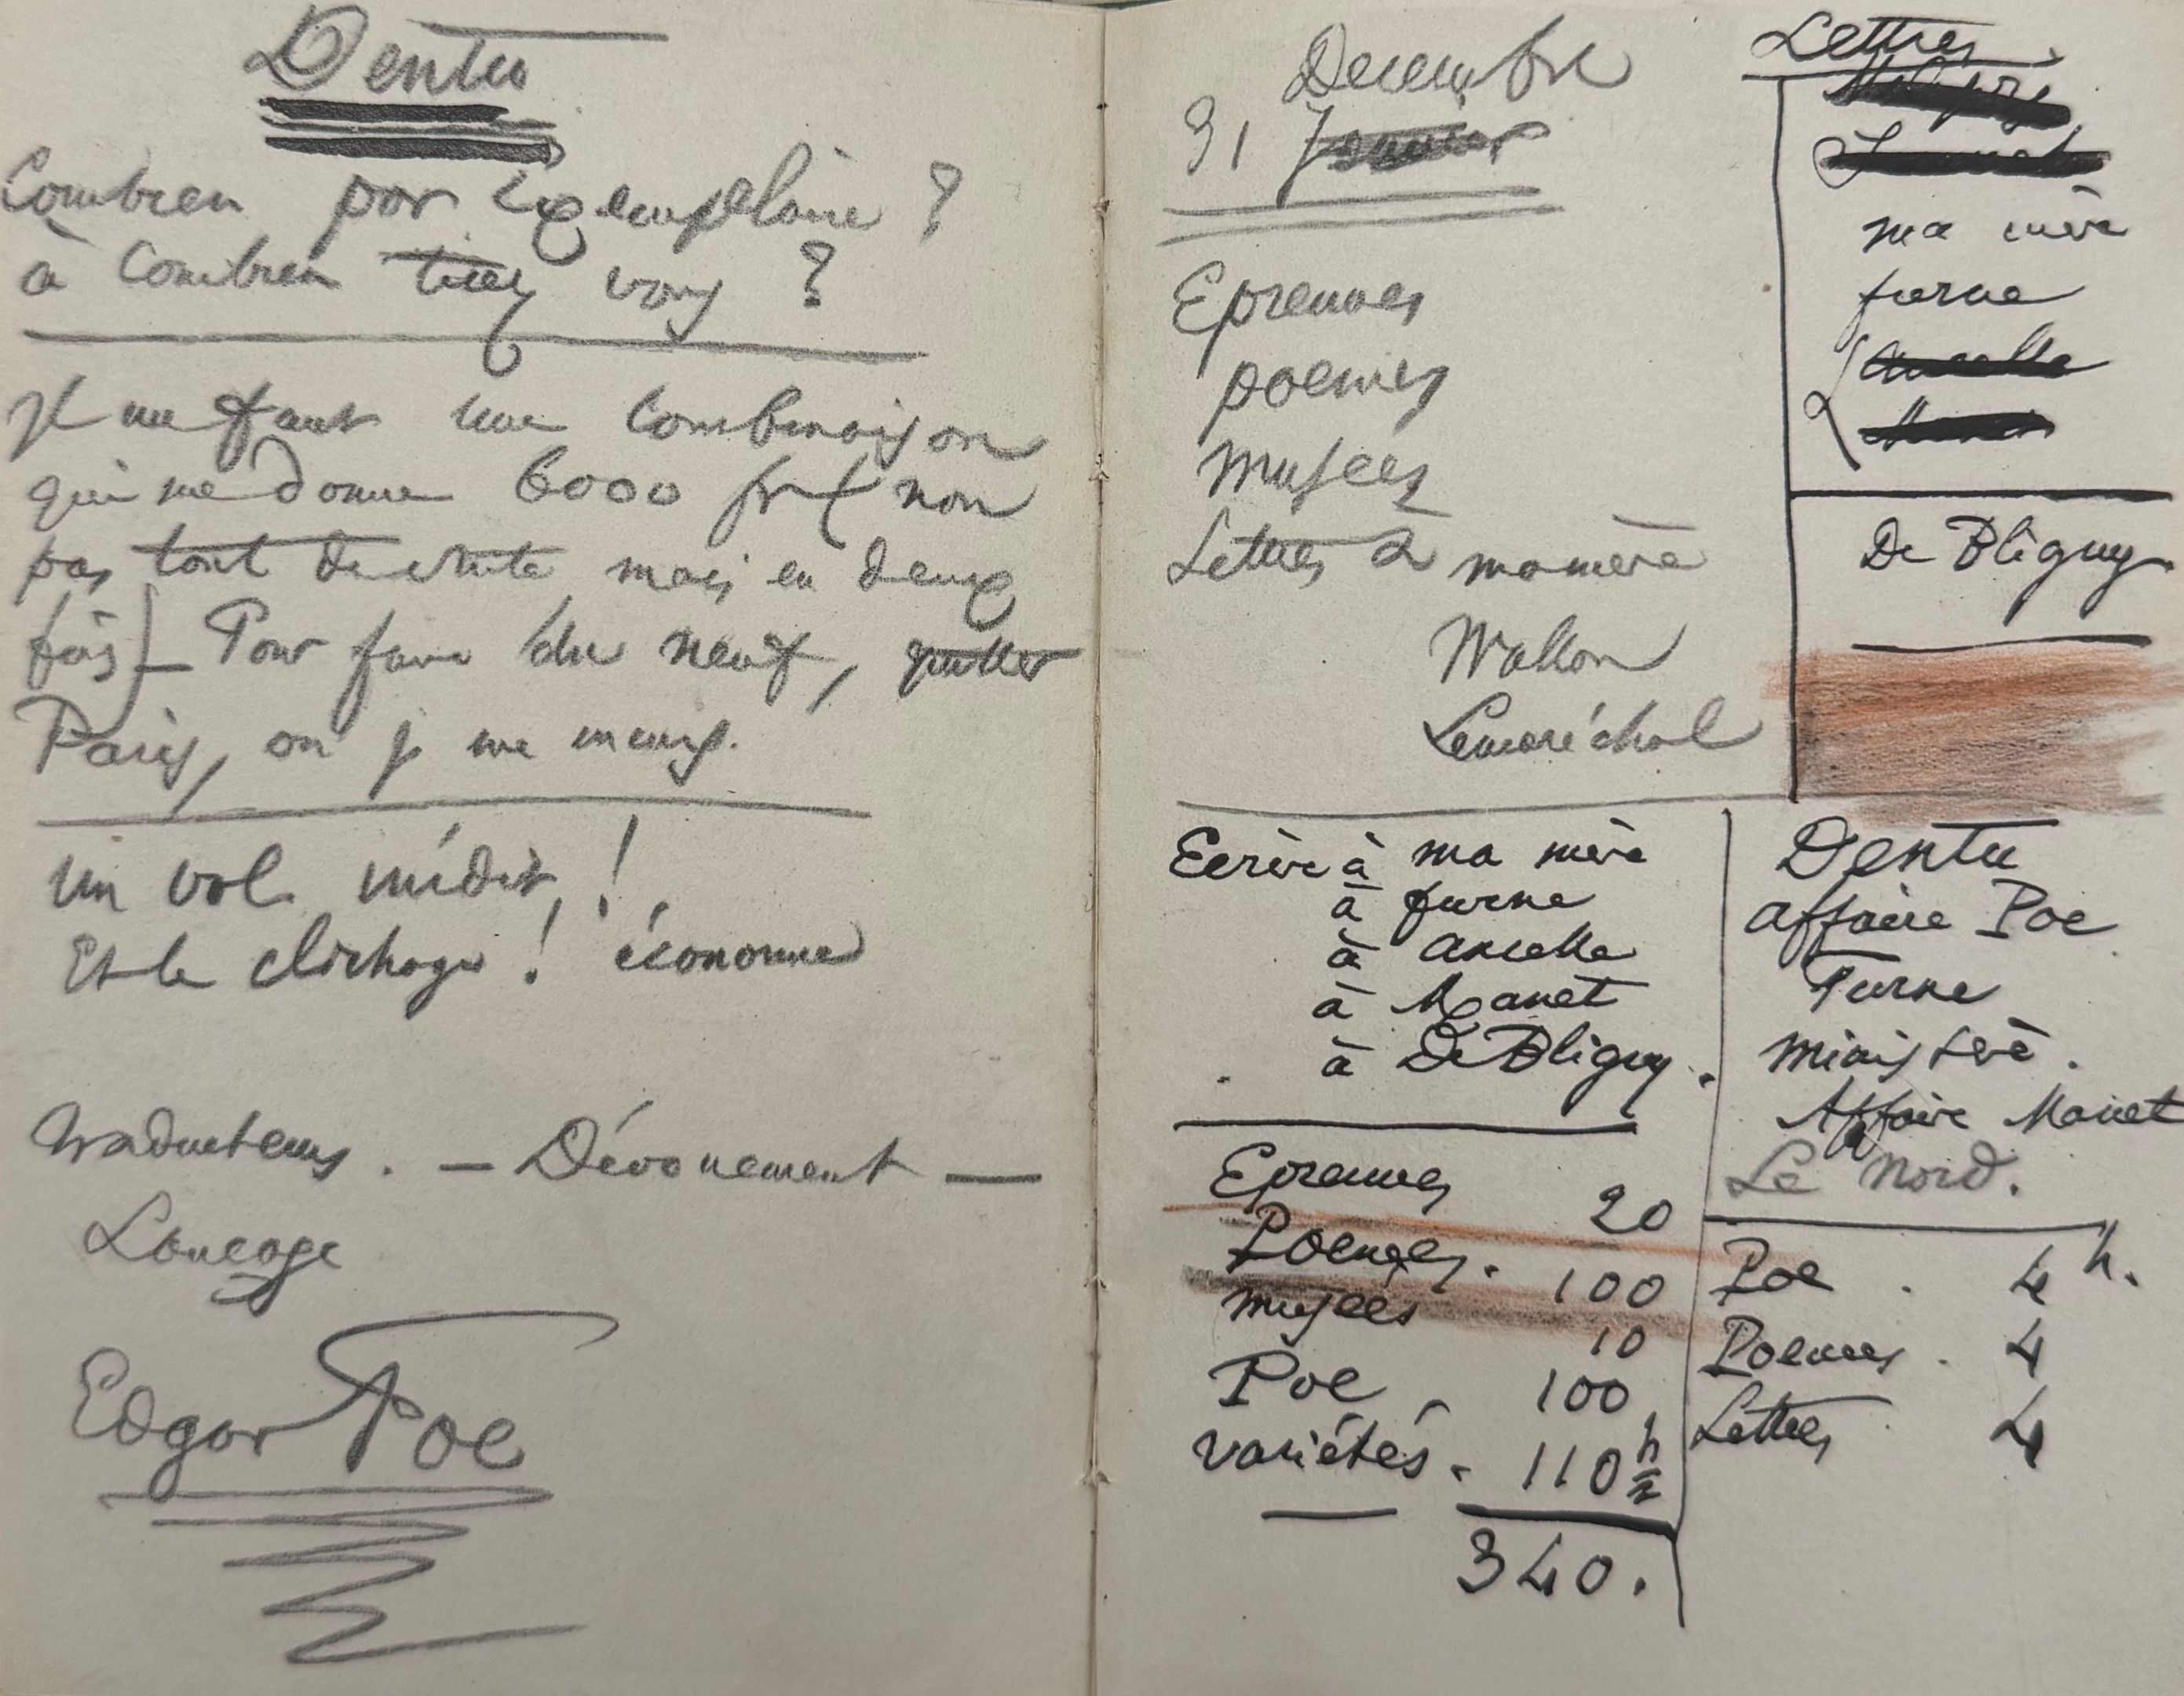 Dentu
Combien par Exemplaire ?
à Combien tirez vous ?
Il me faut une Combinaison
qui me donne 6000 fr ( non
pas tout de suite mais en deux
fois) — Pour faire du neuf, quitter
Paris, ou je me meurs.
un vol. inédit, !
Et le clichage ! économie
traducteurs. — Dévouement —
Langage
Edgar Poe
Decembre
31 Janvier
Epreuves
poemes
musées
Lettres à ma mère
Wallon
Lemaréchal
Ecrire à ma mère
à furne
à Ancelle
à Manet
à De Bligny.
Epreuves 20
Poemes. 100
musées 10
Poe. 100
variétés. 110 h
340.
Lettres
ma mère
furne
Ancelle
Manet
De Bligny
Dentu
affaire Poe
Furne
ministère.
Affaire Manet
Le Nord.
Poe. 4 h.
Poemes. 4
Lettres 4